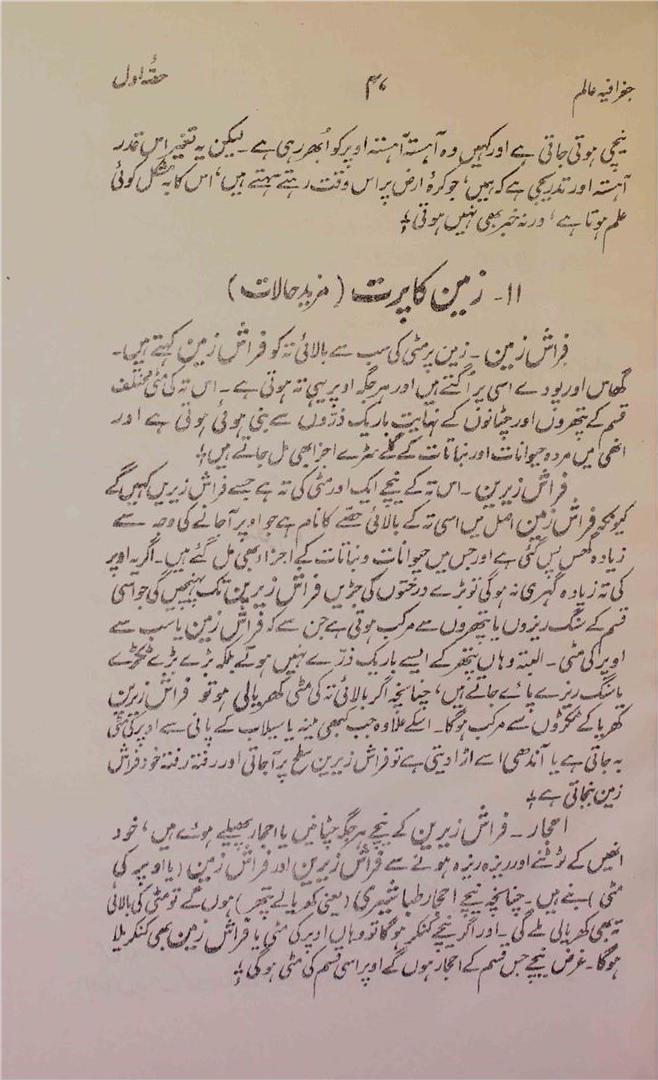 جغرافیہ عالم ۴۷ حصۂ اول
نیچی ہوتی جاتی ہے اور کہیں وہ آہستہ آہستہ اوپر کو اُبھر رہی ہے۔ لیکن یہ تغیر اس قدر
آہستہ اور تدریجی ہے کہ ہمیں، جو کرۂ ارض پر اس وقت رہتے سہتے ہیں، اس کا بہ مشکل کوئی
علم ہوتا ہے، ورنہ خبر بھی نہیں ہوتی۔
۱۱۔ زمین کا پرت (مزید حالات)
فراش زمین۔ زمین پر مٹی کی سب سے بالائی تہ کو فراش زمین کہتے ہیں۔
گھاس اور پودے اسی پر اُگتے ہیں اور ہر جگہ اوپر یہی تہ ہوتی ہے۔ اس تہ کی مٹی مختلف
قسم کے پتھروں اور چٹانوں کے نہایت باریک ذرّوں سے بنی ہوئی ہوتی ہے اور
انھی میں مردہ حیوانات اور نباتات کے گلے سڑے اجزا بھی مل جاتے ہیں۔
فراش زیرین۔ اس تہ کے نیچے ایک اور مٹی کی تہ ہے جسے فراش زیریں کہیں گے
کیونکہ فراش زمین اصل میں اسی تہ کے بالائی حصّے کا نام ہے جو اوپر آجانے کی وجہ سے
زیادہ گھس پس گئی ہے اور جس میں حیوانات و نباتات کے اجزاء بھی مل گئے ہیں۔ اگر یہ اوپر
کی تہ زیادہ گہری نہ ہوگی تو بڑے درختوں کی جڑیں فراش زیرین تک پہنچیں گی جو اسی
قسم کے سنگ ریزوں یا پتھروں سے مرکب ہوتی ہے جن سے کہ فراش زمین یا سب سے
اوپر کی مٹی۔ البتہ وہاں پتھر کے ایسے باریک ذرّے نہیں ہوتے بلکہ بڑے بڑے ٹکڑے
یا سنگ ریزے پائے جاتے ہیں، چنانچہ اگر بالائی تہ کی مٹی کھریالی ہو تو فراش زیرین
کھریا کے ٹکڑوں سے مرکب ہوگا۔ اسکے علاوہ جب کبھی مینہ یا سیلاب کے پانی سے اوپر کی مٹی
بہ جاتی ہے یا آندھی اسے اڑا دیتی ہے تو فراش زیرین سطح پر آجاتی اور رفتہ رفتہ خود فراش
زمین بنجاتی ہے۔
احجار۔ فراش زیرین کے نیچے ہر جگہ چٹانیں یا احجار پھیلے ہوئے ہیں، خود
انھیں کے ٹوٹنے اور ریزہ ریزہ ہونے سے فراش زیرین اور فراش زمین (یا اوپر کی
مٹی) بنے ہیں۔ چنانچہ نیچے احجار طباشیری (یعنی کھریالے پتھر) ہوں گے تو مٹی کی بالائی
تہ بھی کھریالی ملے گی۔ اور اگر نیچے کنکر ہوگا تو وہاں اوپر کی مٹی یا فراش زمین بھی کنکریلا
ہوگا۔ غرض نیچے جس قسم کے احجار ہوں گے اوپر اسی قسم کی مٹی ہوگی۔